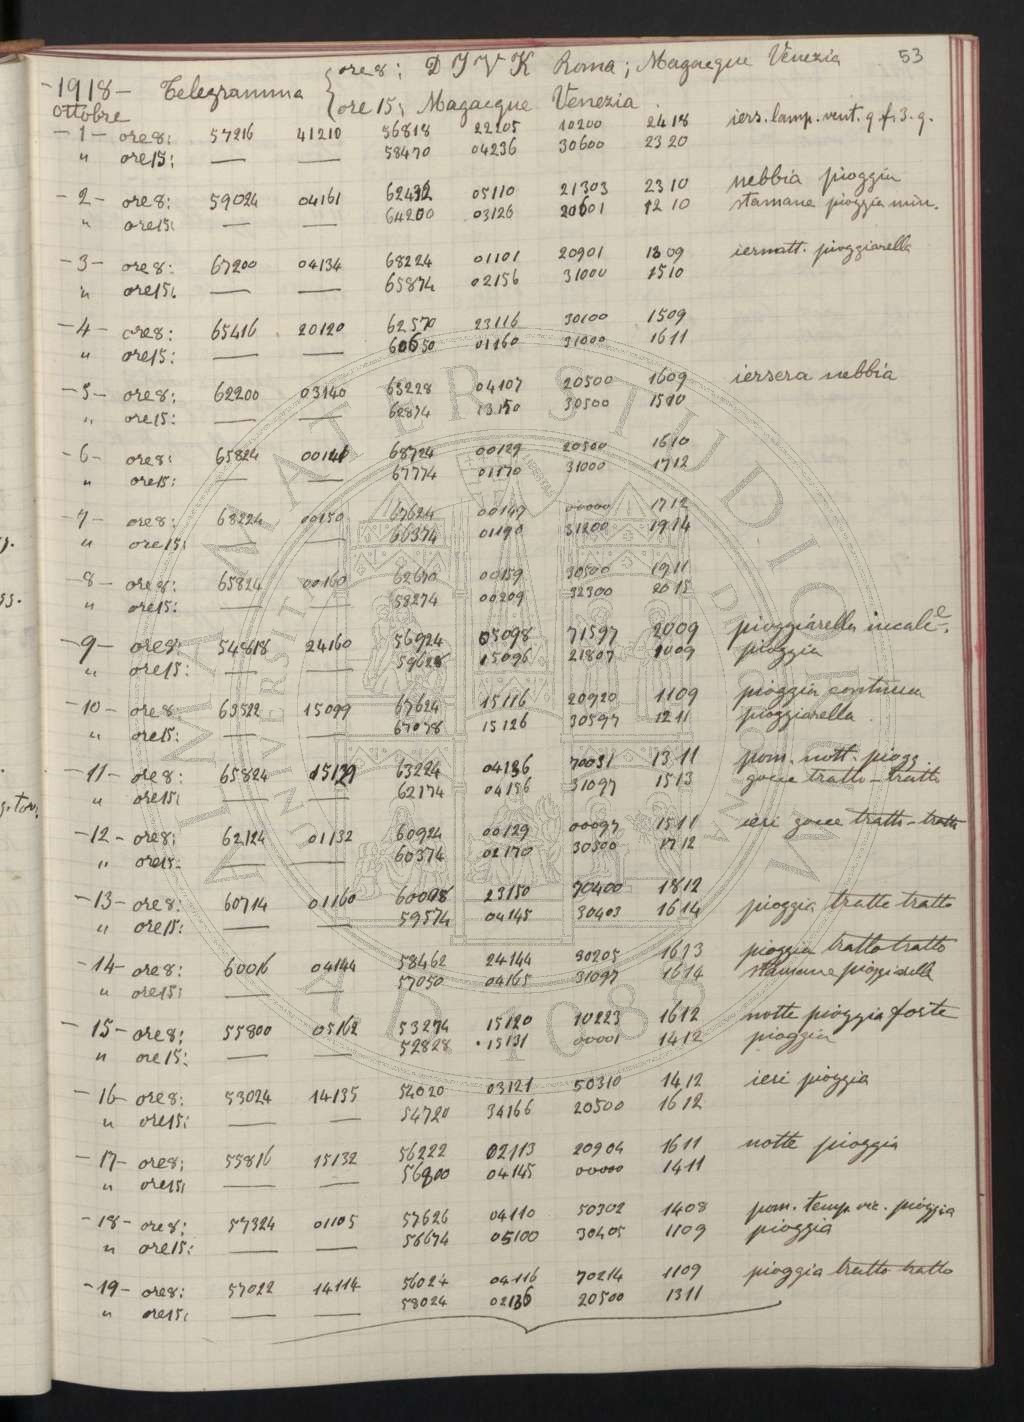 53
-1918- Telegramma { ore8: D I V K Roma; Magacque Venezia
Ottobre ore 15: Magacque Venezia
-1- ore8: 57216 41210 56818 22205 10200 2418 iers. lamp. vent. q. f. 3. q.
" ore15: — — 58470 04236 30600 2320
-2- ore8: 59024 04161 62432 05110 21303 2310 nebbia pioggia
" ore15: — — 64200 03126 20601 1210 stamane pioggia min.
-3- ore8: 67200 04134 68224 01101 20901 1309 iermatt. pioggiarella
" ore15: — — 65874 02156 31000 1510
-4- ore8: 65416 20120 62570 23116 30100 1509
" ore15: — — 60650 01160 31000 1611
-5- ore8: 62200 03140 63228 04107 20500 1609 iersera nebbia
" ore15: — — 62874 13150 30500 1510
-6- ore8: 65824 00141 68724 00129 20500 1610
" ore15: — — 67774 01170 31000 1712
-7- ore8: 68224 00150 67624 00147 00000 1712
" ore15: — — 66374 01190 31200 1914
-8- ore8: 65824 00160 62670 00159 30500 1911
" ore15: — — 58274 00209 32300 2015
-9- ore8: 54818 24160 56924 05098 71597 2009 pioggiarella incalc.e
" ore15: — — 59628 15096 21807 1009 pioggia
-10- ore8: 63522 15099 67624 15116 20920 1109 pioggia continua
" ore15: — — 67078 15126 30597 1211 pioggiarella
-11- ore8: 65824 15129 63224 04136 70031 1311 pom. nott. piogg.
" ore15: — — 62174 04156 31097 1513 gocce tratto-tratto
-12- ore8: 62124 01132 60924 00129 00097 1511 ieri gocce tratto-tratto
" ore15: — — 60374 02170 30500 1712
-13- ore8: 60714 01160 60098 23150 70400 1812
" ore15: — — 59574 04145 30403 1614 pioggia tratto tratto
-14- ore8: 60016 04144 58462 24144 30205 1613 pioggia tratto tratto
" ore15: — — 57050 04165 31097 1614 stamane pioggiarella
-15- ore8: 55800 05162 53274 15120 10223 1612 notte pioggia forte
" ore15: — — 52828 15131 00001 1412 pioggia
-16- ore8: 53024 14135 52020 03121 50310 1412 ieri pioggia
" ore15: — — 54720 34166 20500 1612
-17- ore8: 55816 15132 56222 02113 20904 1611 notte pioggia
" ore15: — — 56800 04145 00000 1411
-18- ore8: 57324 01105 57626 04110 50302 1408 pom. temp. vic. pioggia
" ore15: — — 56674 05100 30405 1109 pioggia
-19- ore8: 57022 14114 56024 04116 70214 1109 pioggia tratto tratto
" ore15: — — 58024 02136 20500 1311